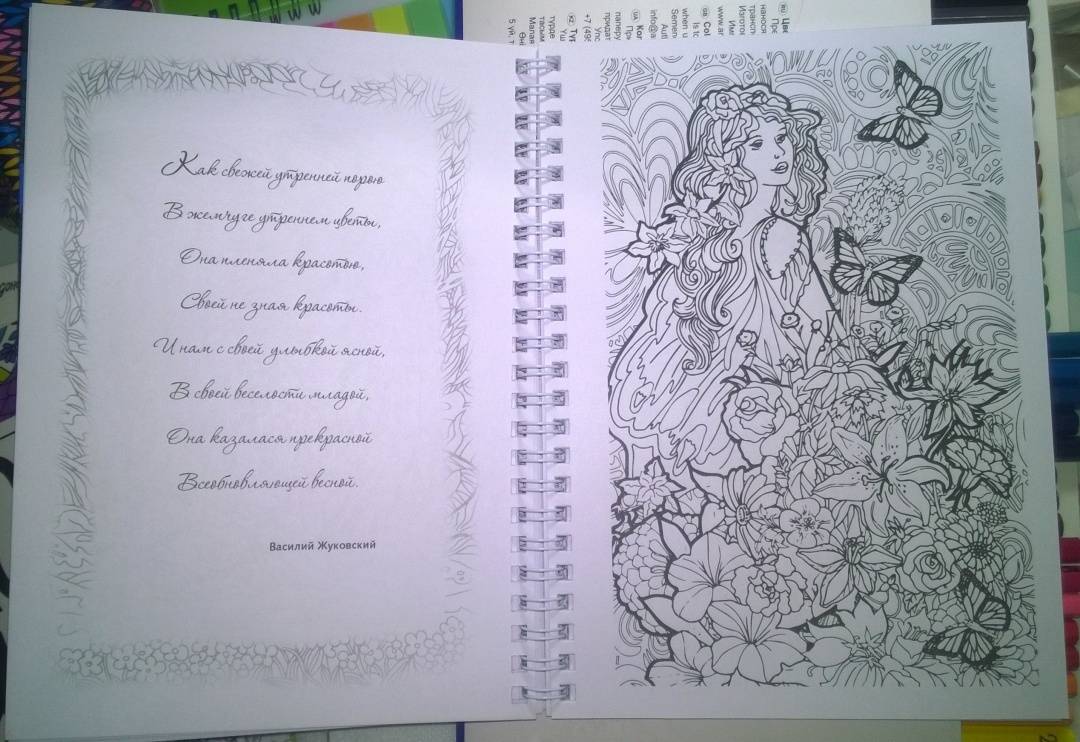 Как свежей утренней порою
В жемчуге утреннем цветы,
Она пленяла красотою,
Своей не зная красоты.
И нам с своей улыбкой ясной,
В своей веселости младой,
Она казалася прекрасной
Всеобновляющей весной.
Василий Жуковский